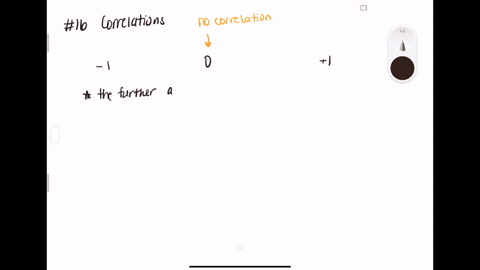 #16 Correlations
no correlation
-1 0 +1
* the further a